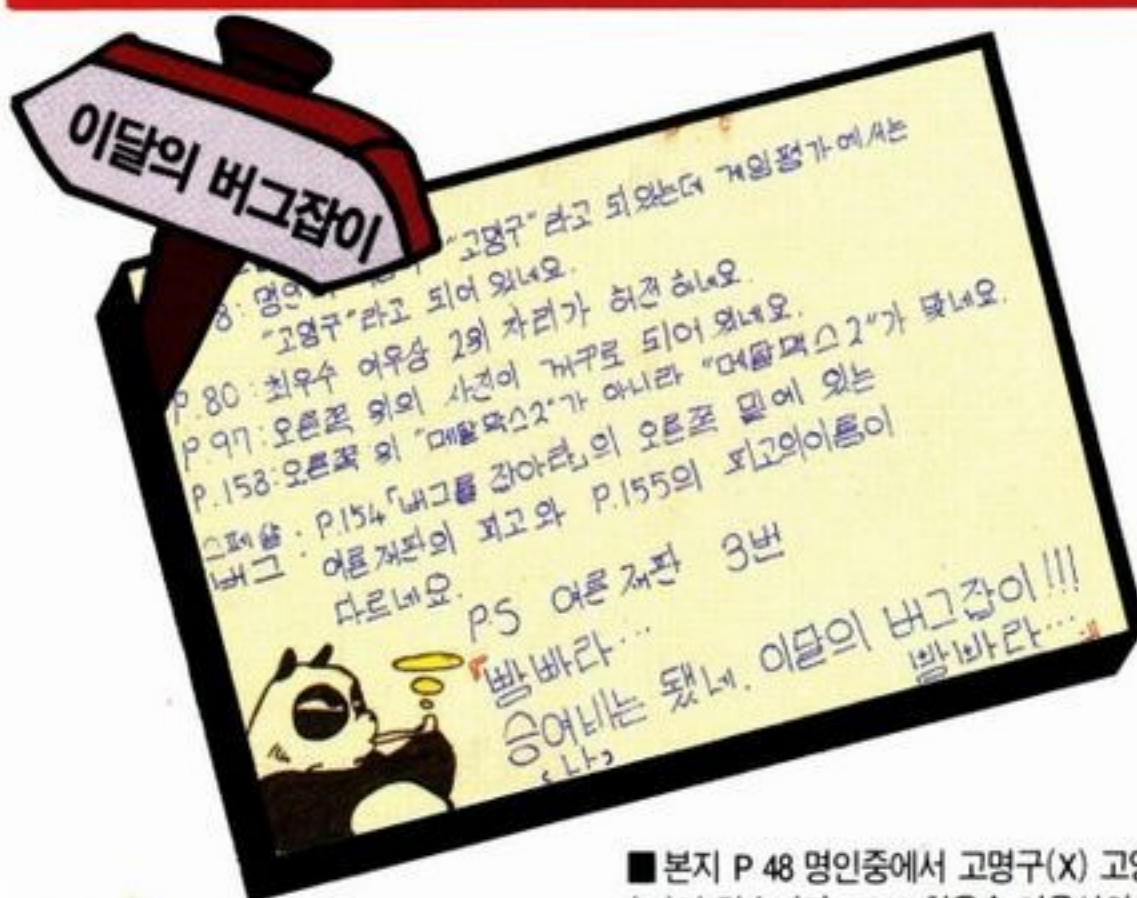 이달의 버그잡이
8: 명인 "고명구"라고 되있는데 게임평가에서는
"고영구"라고 되어 있네요.
P.80 : 최우수 여우상 2위 자리가 허전 하네요.
P.97 : 오른쪽 위의 사진이 꺼꾸로 되어 있네요.
P.158: 오른쪽 위 "메탈막스2"가 아니라 "메탈맥스2"가 맞네요.
스페샬 : P.154 「버그를 잡아라」의 오른쪽 밑에 있는
버그 여론재판의 피고와 P.155의 피고의이름이
다르네요.
P.S 여론재판 3번
"빰빠라…
증여비는 됐네. 이달의 버그잡이!!!
빰바라…"
<나>
■ 본지 P 48 명인중에서 고명구(X)